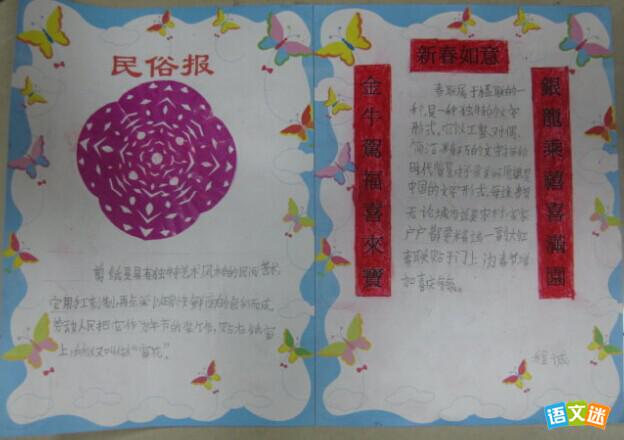 民俗报
剪纸是具有独特艺术风格的民间艺术,
它用手工刻制,再点染以明快鲜的色彩而成。
劳动人民把它作为年节的,贴在纸窗
上,所以又叫做“窗花”。
新春如意
金牛駕福喜來寶
春联属于楹联的一
种,是一种独特的文学
形式,它以工整、对偶、
简洁、精巧的文字描绘
时代背景,抒发美好愿望,是
中国的文学形式,每逢春节
无论城市还是农村,家家
户户都要精选一副大红
春联贴于门上,为春节增
加喜庆气氛。
銀龍乘禧喜滿園
程诚
语文迷